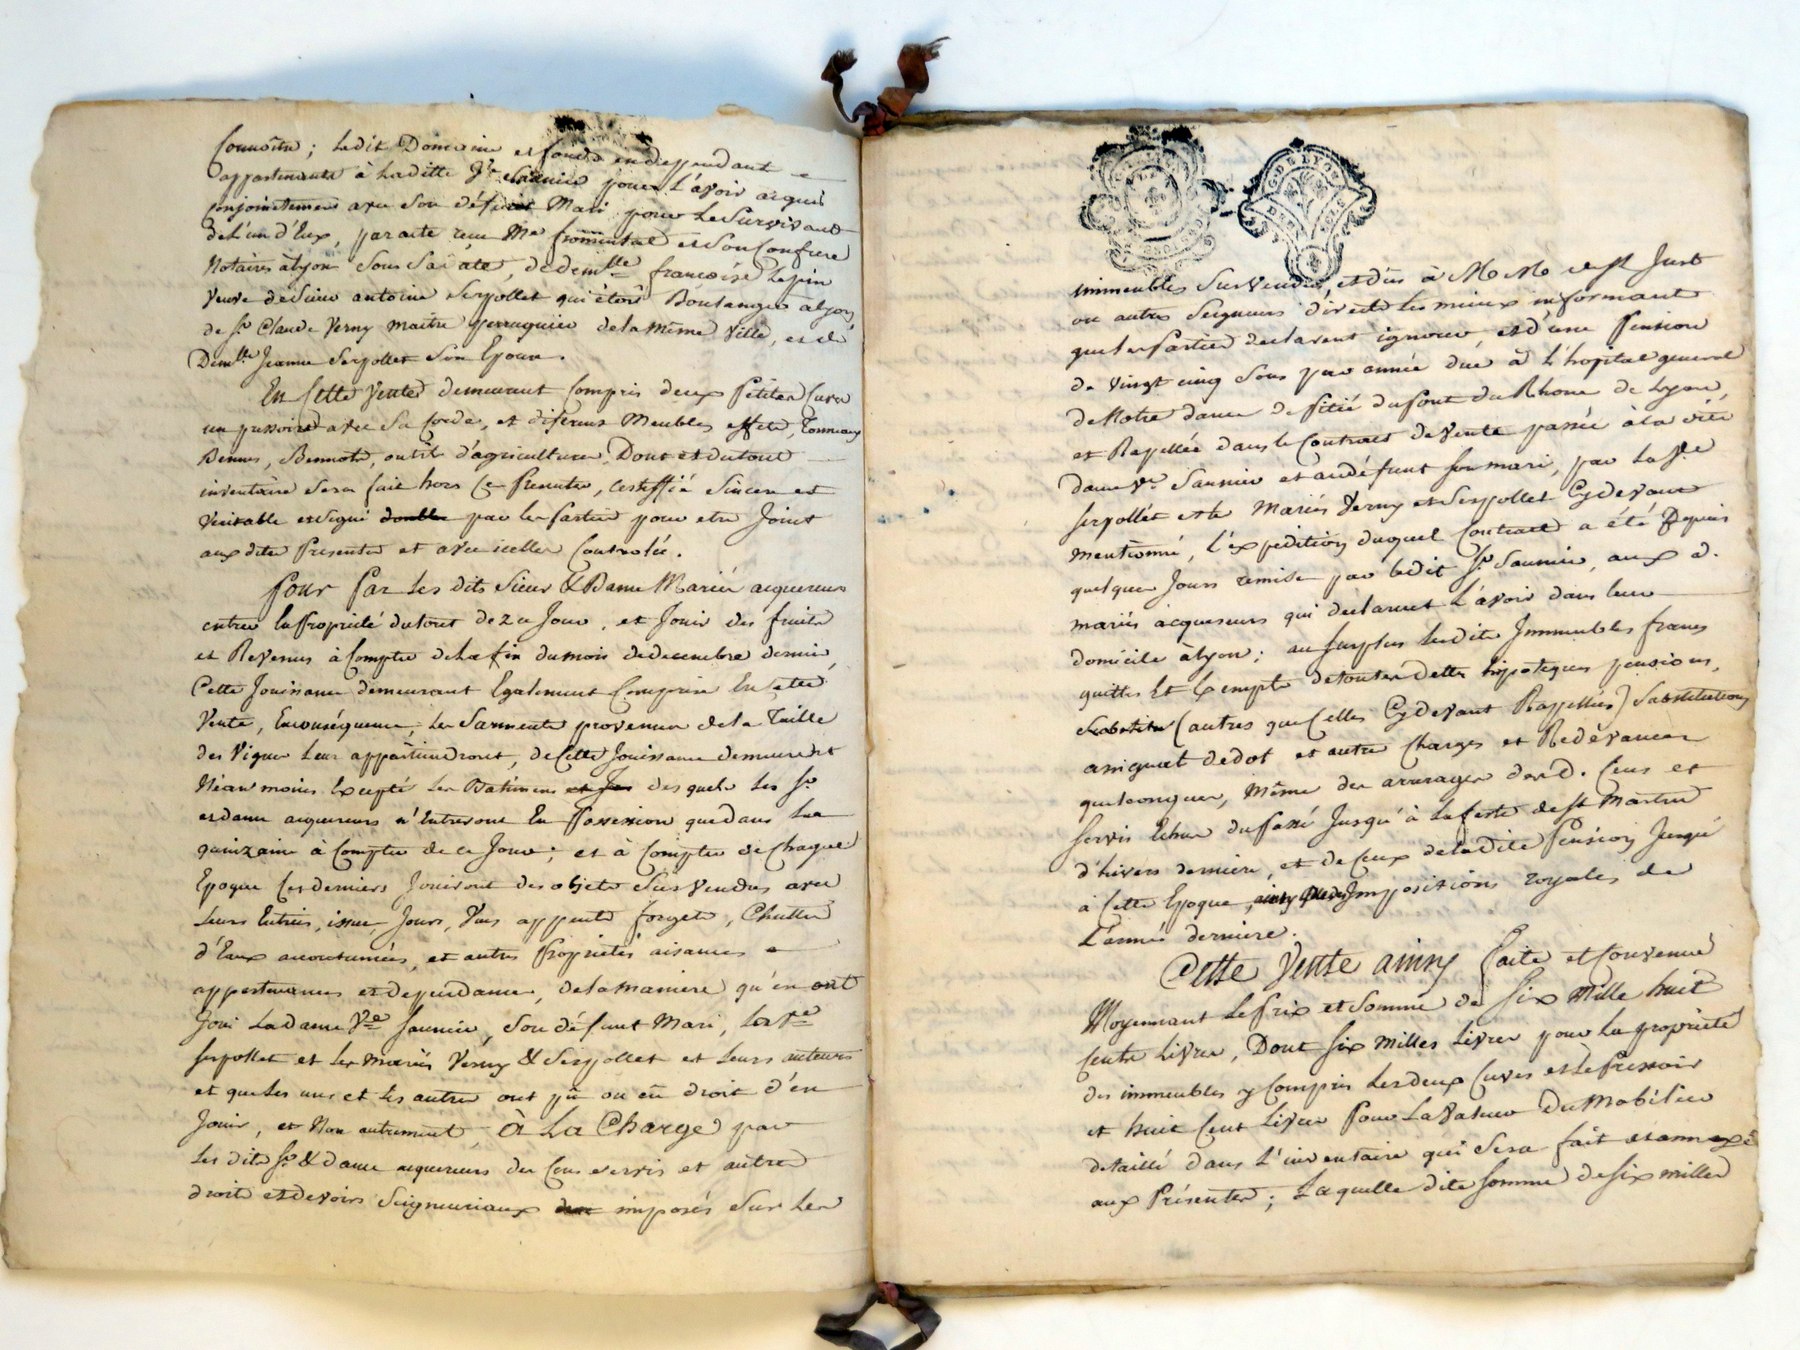 Connoître; Ledit Domaine et fonds en deppendant
appartenants à Laditte Ve. Saunier pour L'avoir acquis
conjointement avec Son défunt Mari pour Le Survivant
de L'un d'Eux, par acte reçu Me. fromental et Son Confrere
Notaires àlyon Sous Sa date, de demlle francoise Lepin
veuve de Sieur antoine Serpollet qui étoit Boulanger alyon
de Sr. Claude Verny maitre perruquier de la Même Ville, et de
Demlle Jeanne Serpollet Son Epouse.
En Cette Vente demeurant Compris deux Petites Cuves
un pressoir avec Sa Corde, et diferens Meubles effets, Tonneaux
Bennes, Bennots, outils d'agriculture, Dont et dutout
inventaire Sera fait hors Ces Presentes, Certiffié Sincere et
Veritable et Signé double par les Parties pour etre Joint
aux dites Presentes et avec icelles Controlée.
Pour Par Les dits Sieur & Dame Mariés acquereurs
entrer En Proprieté dutout de Ce Jour, et Jouir des fruits
et Revenus à Compter de La fin du mois de decembre dernier,
Cette Jouissance demeurant Egalement Comprise En Cette
Vente, En Conséquence, les Sarments provenus de la Taille
des Vignes Leur appartiendront, de Cette Jouissance demeurent
Néanmoins Excepté Les Batimens desquels Les Sr.
et dame acquereurs n'Entreront En Possession que dans La
quinzaine à Compter de ce Jour; et à Compter de Chaque
Epoque Ces derniers Jouiront des objets Sus Vendus avec
Leurs Entrées, issues, Jours, Vues, appents forgets, Chuttes
d'Eaux accoutumées, et autres Proprietés aisances
appartenances et dependances, de la maniere qu'en ont
Joui La dame Ve. Saunier, Son défunt Mari, La Ve.
Serpollet et Les mariés Verny & Serpollet et Leurs auteurs
et que Les uns et Les autres ont pû ou eû droit d'en
Jouir, et Non autrement, À La Charge par
Les dits Sr. & dame acquereurs des Cens servis et autres
droits et devoirs Seigneuriaux imposés Sur Les
G. DE LYON
immeubles Sus Vendus, et dûs à MM. de St. Just
ou autres Seigneurs directs Les mieux informant
que Les Parties declarent ignorer, et d'une Pension
de vingt cinq Sous par année due à L'hopital general
de Notre dame de Pitié du Pont du Rhone de Lyon,
et Rapellée dans Le Contract de Vente passée à La ditte
dame Ve. Saunier et audéfunt Son mari, par La Ve.
Serpollet et les Mariés Verny et Serpollet Cy devant
mentionné, L'expedition duquel Contract a été Depuis
quelques Jours remise par Ledit Sr. Saunier, aux d.
mariés acquereurs qui declarent L'avoir dans leur
domicile à lyon; au Surplus Lesdits Immeubles francs
quittes Et Exempts de toutes dettes hipoteques pensions,
(autres que Celles Cy devant Rappellées) Substitutions
augment de dot et autres Charges et Redevances
quelconques, même des arrerages desd. Cens et
Servis Echus du Passé Jusqu'à La feste de St. Martin
d'hivers derniere, et de Ceux de la dite Pension Jusqu'
à Cette Epoque, Impositions royales de
L'année derniere.
Cette Vente ainsy faite et Convenue
Moyennant Le Prix et Somme de Six Mille huit
Cents Livres, Dont Six Milles Livres pour La proprieté
des immeubles y Compris Les deux Cuves et Le Pressoir
et huit Cent Livres Pour La Valeur Du Mobilier
detaillé dans L'inventaire qui Sera fait et annexé
aux Présentes; Laquelle dite Somme de Six milles